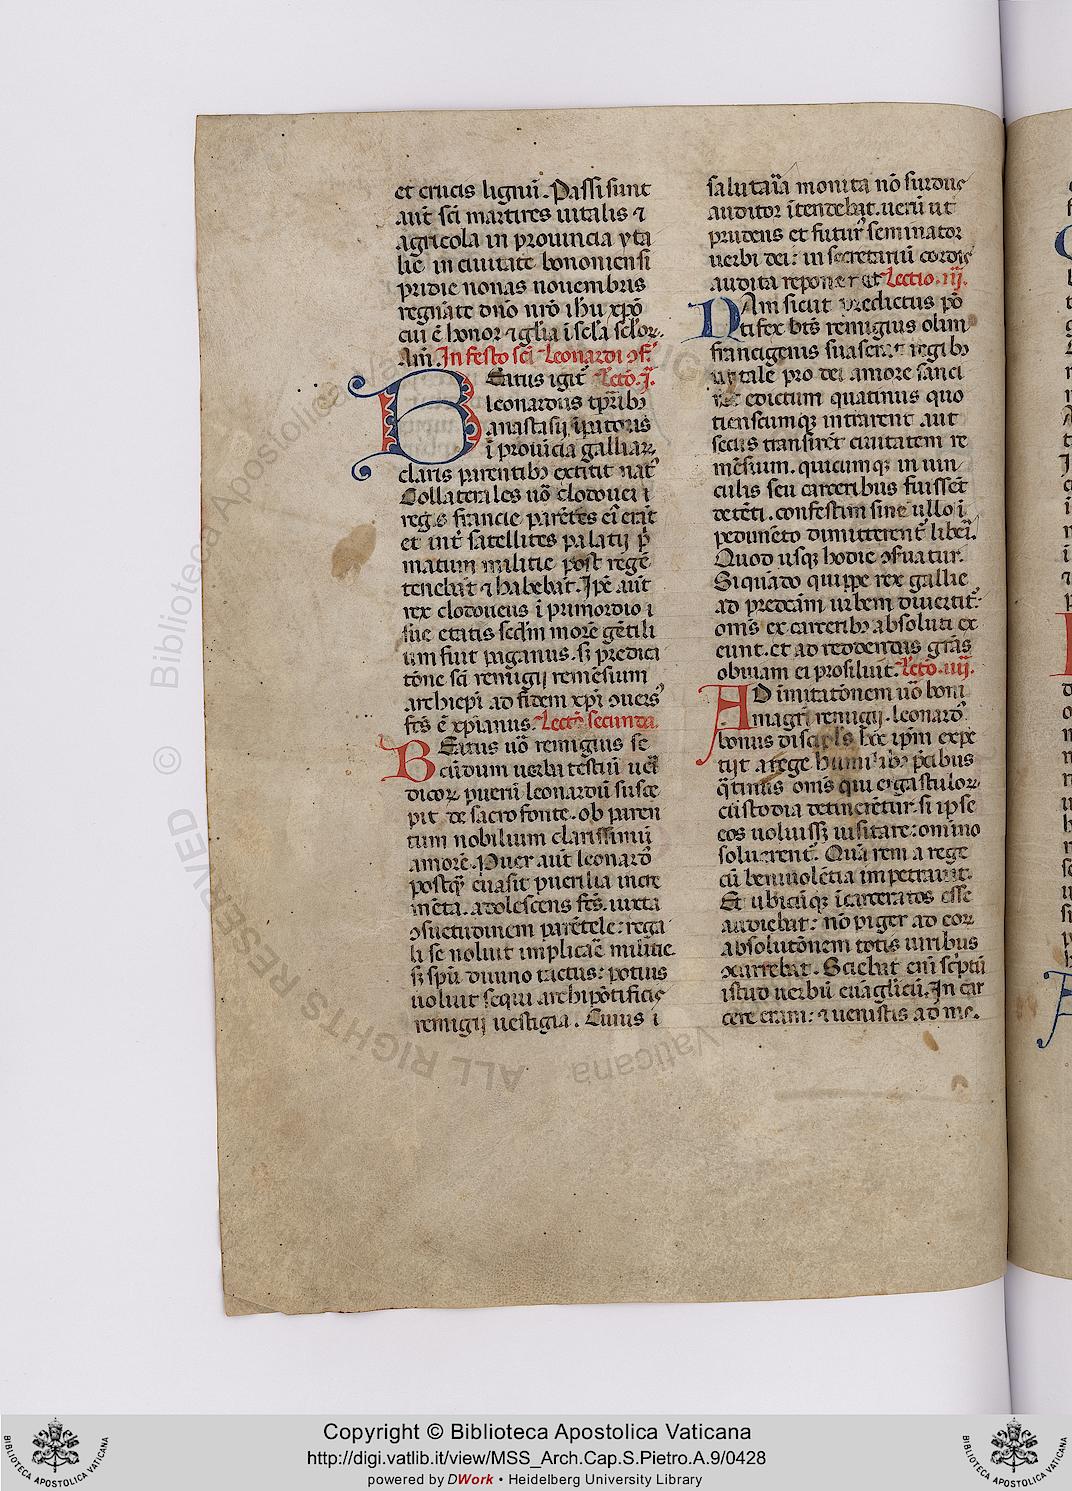 et crucis lignuꝫ. Passi sunt
aut̄ sc̄i martires uitalis ⁊
agricola in prouincia yta
lie in ciuitate bononiensi
pridie nonas nouembris
regnāte dn̄o nr̄o ihu xp̄o
cui ē honor ⁊ gl̄ia ī sc̄la sc̄loꝝ.
Am̄. In festo sc̄i Leonardi ꝯf.
BEatus igit᷑ Lect̄o. ī.
leonardus tp̄ribꝫ
anastasij īpatoris
ī prouīcia galliaꝝ
claris parentibꝫ extitit nat᷒
Collaterales uō clodouei ī
regis francie parētes eī erāt
et int̄ satellites palatij p̄
matum militie post regē
tenebāt ⁊ habebāt. Ip̄e aut̄
rex clodoueus ī primordio ī
sue etatis sc̄dm morē gētili
um fuit paganus. sꝫ predica
tōne sc̄i remigij remēsium
archiep̄i ad fidem xp̄i ꝯuers᷒
fc̄s ē xp̄ianus. Lect̄o secunda.
BEatus uō remigius se
cūdum uerba testiū uel
dicoꝝ puerū leonardū susce
pit de sacro fonte. ob paren
tum nobilium clarissimū
amorē. Puer aut̄ leonard᷒
postqꝫ euasit puerilia incre
mēta. adolescens fc̄s. iuxta
ꝯsuetudinem parētele: rega
li se noluit implicāe militie.
sꝫ sp̄u diuino tactus: potius
uoluit sequi archipōtificis
remigij uestigia. Cuius ī
salutaria monita nō surdus
auditor ītendebat. uerū ut
prudens et futur᷒ seminator
uerbi dei: in secretariū cordis
audita reponeret. Lectio. iij.
NAm sicut predictus pō
tifex bt̄s remigius olim
francigenis suaserat regibꝫ
ut tale pro dei amore sanci
edictum quatinus quo
tienscumqꝫ intrarent aut
secus transirēt ciuitatem re
mēsium. quicumqꝫ in uin
culis seu carceribus fuissēt
detēti. confestim sine ullo ī
pedimēto dimitterent᷑ liberi.
Quod usqꝫ hodie ꝯseruatur.
Siquādo quippe rex gallie
ad predcām urbem diuertit:
omīs ex carceribꝫ absoluti ex
eunt. et ad reddendas grās
obuiam ei prosiluīt. Lect̄o. iiij.
AD imitatōnem uō boni
magr̄i remigij. leonard᷒
bonus discipls hec ip̄m expe
tijt a rege humilibꝫ p̄cibus
qͣtinus omīs qui ergastuloꝝ
custodia detinerētur. si ipse
eos uoluissꝫ uisitare: omīno
soluerent᷑. Quā rem a rege
cū beniuolētia impetrauit.
Et ubicūqꝫ īcarceratos esse
audiebat: nō piger ad eoꝝ
absolutōnem totis uiribus
currebat. Sciebat eni sc̄ptū
istud uerbū euāgl̄icū. In car
cere eram: ⁊ uenistis ad me.
© Biblioteca Apostolica Vaticana
ALL RIGHTS RESERVED
Copyright © Biblioteca Apostolica Vaticana
http://digi.vatlib.it/view/MSS_Arch.Cap.S.Pietro.A.9/0428
powered by DWork • Heidelberg University Library
BIBLIOTECA APOSTOLICA VATICANA
BIBLIOTECA APOSTOLICA VATICANA